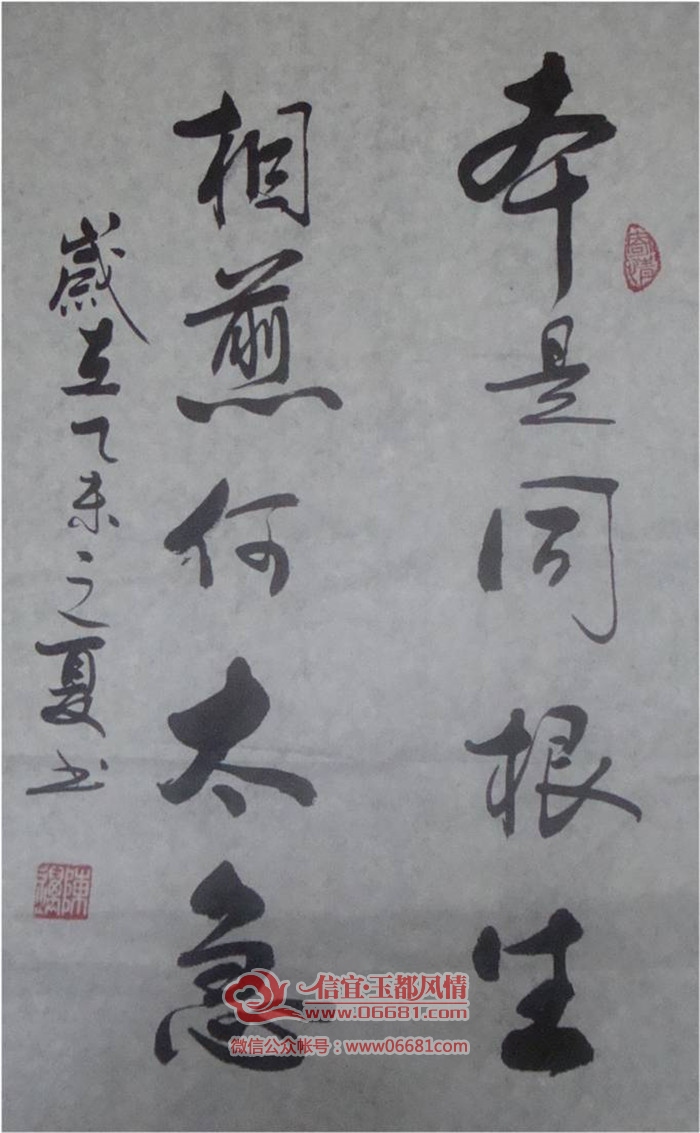 本是同根生
相煎何太急
歲在乙未之夏书
寄情
信宜·玉都风情
www.06681.com
微信公众帐号：www06681com